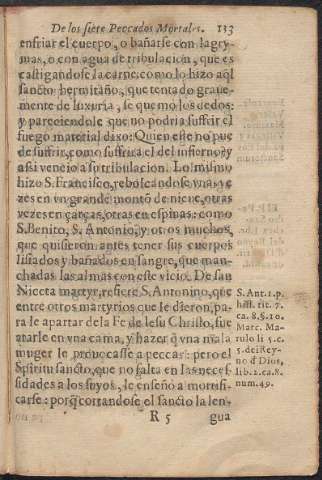 De los siete Peccados Mortales. 133
enfriar el cuerpo, o bañarse con lagry-
mas, o con agua de tribulacion, que es
castigandose la carne, como lo hizo aq̃l
sancto hermitaño, que tentado graue-
mente de luxuria, se quemo los dedos:
y pareciendole que no podria suffrir el
fuego material dixo: Quien este no pue
de suffrir, como suffrira el del infierno? y
assi vencio a su tribulacion. Lo mismo
hizo S. Francisco, rebolcandose vnas ve
zes en vn grande montõ de nieue, otras
vezes en çarças, otras en espinas: como
S. Benito, S. Antonio, y otros muchos,
que quisieron antes tener sus cuerpos
lisiados y bañados en sangre, que man-
chadas las almas con este vicio. De san
Niceta martyr, refiere S. Antonino, que
entre otros martyrios que le dieron, pa-
ra le apartar de la Fe de Iesu Christo, fue
atarle en vna cama, y hazer q̃ vna mala
muger le prouocasse a peccar: pero el
Spiritu sancto, que no falta en las necef
sidades a los suyos, le enseño a mortifi-
carse: porq̃ cortandose el sancto la len-
R 5 gua
S. Ant. 1. p.
hist. tit. 7.
ca. 8. §. 10.
Marc. Ma-
rulo li 5. c.
5. del Rey-
no d̃ Dios,
lib. 2. ca. 8.
num. 49.